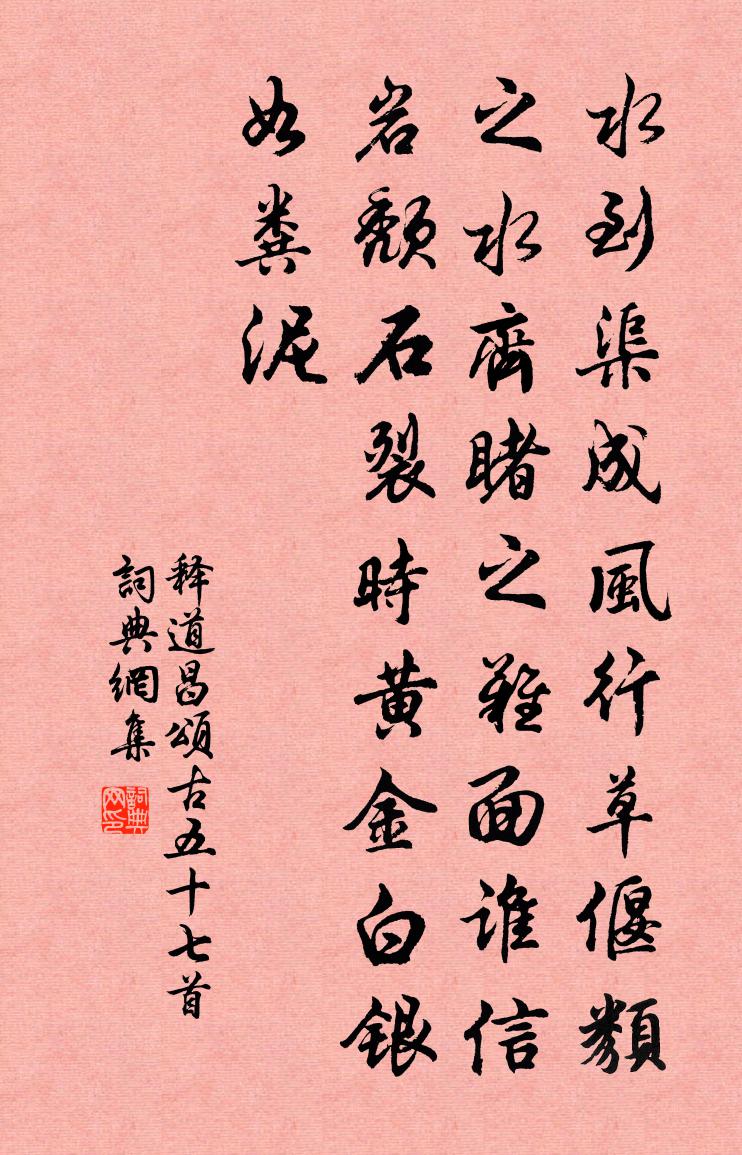 水到渠成風行草偃類
之水齊睹之難面誰信
岩頹石裂時黃金白銀
如糞泥
释道昌頌古五十七首
詞典網集
詞典网印